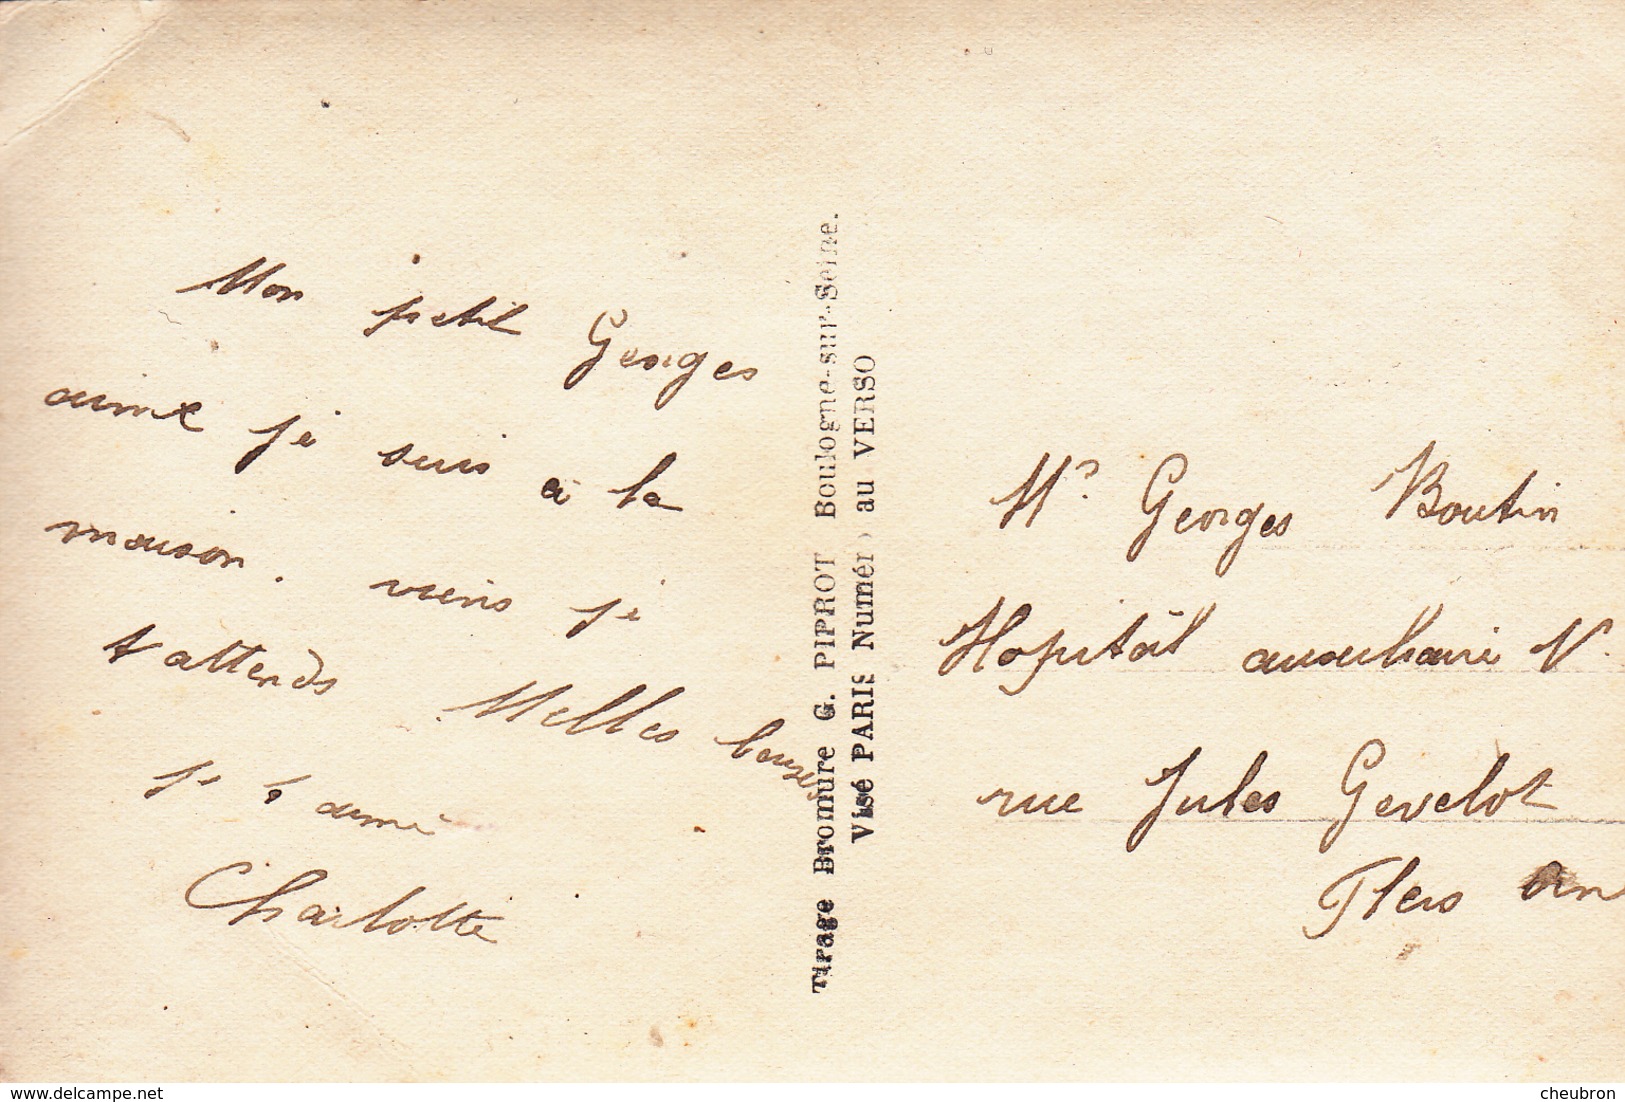 Mon petit Georges
aimé je suis à la
maison. viens je
t attends Milles baisers
je t aime
Charlotte
Tirage Bromure G. PIPROT Boulogne-sur-Seine.
Visé PARIS Numéro au VERSO
Mr Georges Boutin
Hopitâl auxiliaire N°
rue Jules Gevelot
Flers Orn
www.delcampe.net
cheubron